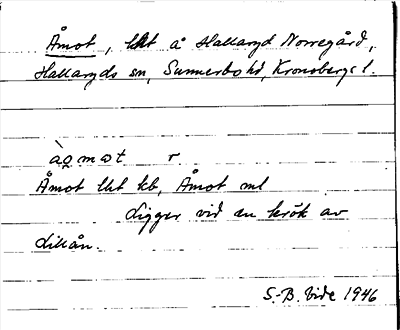 Åmot, lht å Hallaryd Norregård,
Hallaryds sn, Sunnerbo hd, Kronobergs l.
àɷmωt r
Åmot lht kb, Åmot ml
Ligger vid en krök av
Lillån.
S.-B. Vide 1946